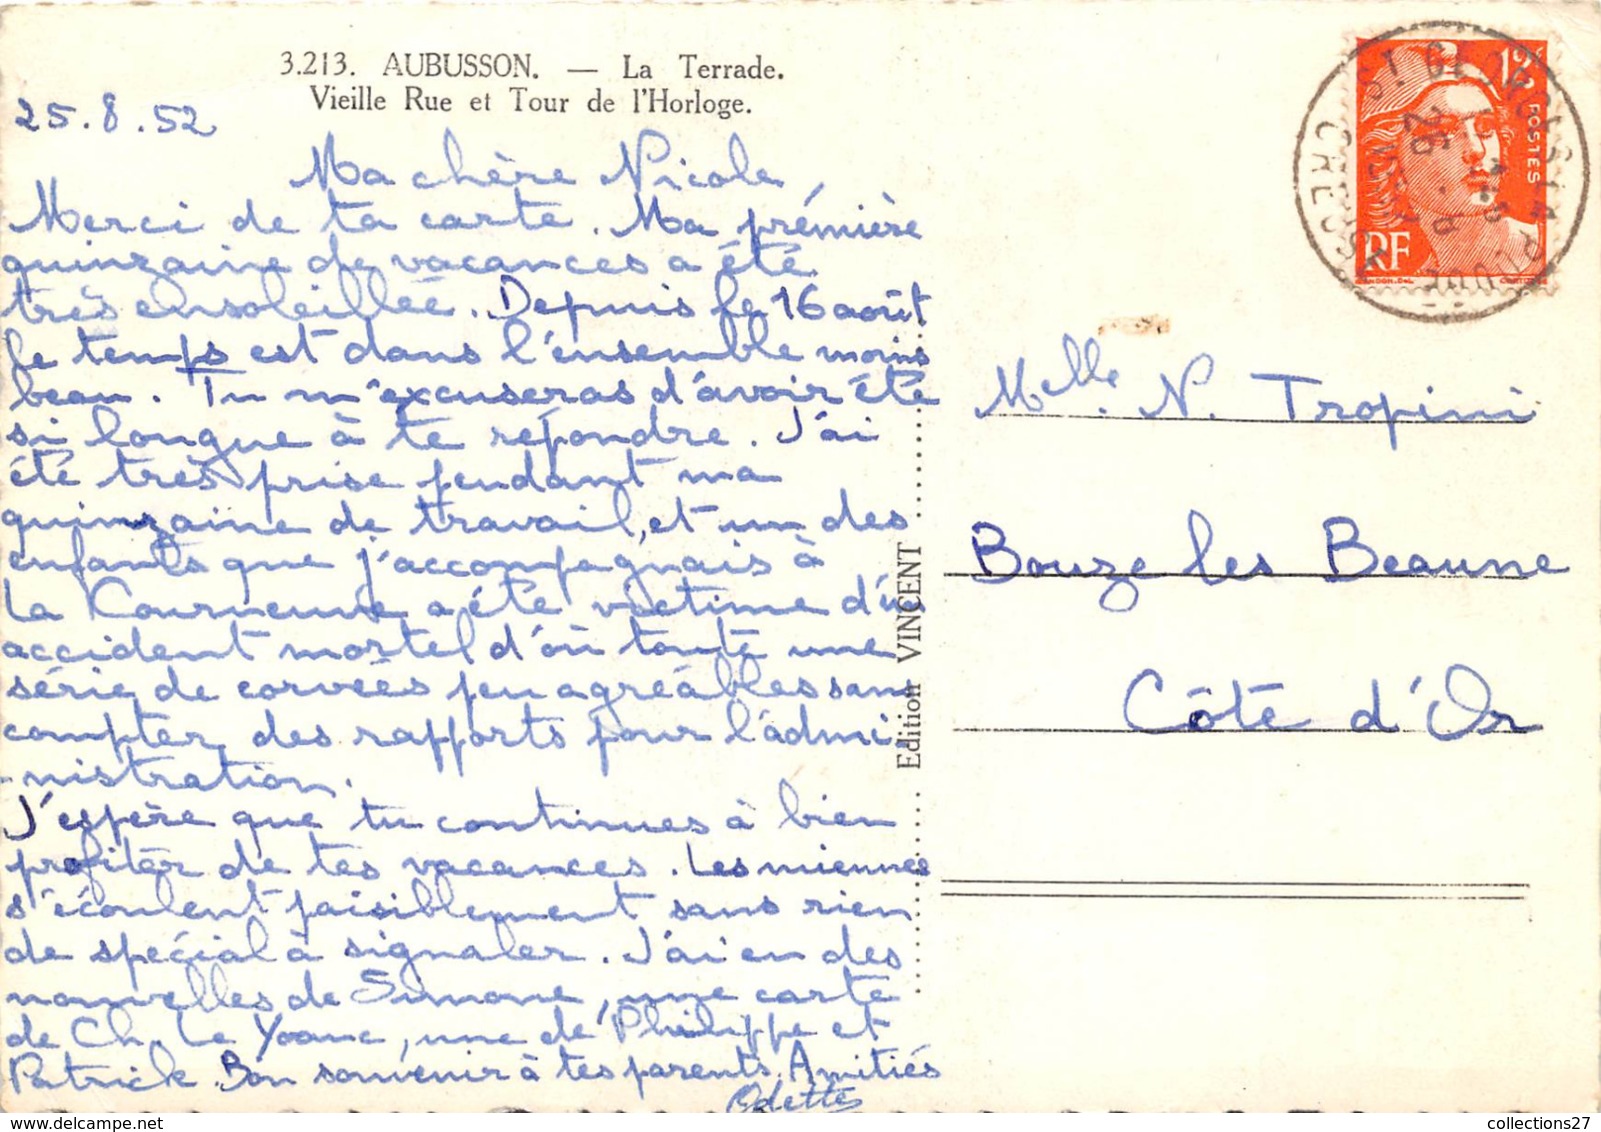 3.213. AUBUSSON. — La Terrade.
Vieille Rue et Tour de l'Horloge.
25.8.52
Ma chère Nicole,
Merci de ta carte. Ma prémière
quinzaine de vacances a été
très ensoleillée. Depuis le 16 août
le temps est dans l'ensemble moins
beau. Tu m'excuseras d'avoir été
si longue à te répondre. J'ai
été très prise pendant ma
quinzaine de travail, et un des
enfants que j'accompagnais à
La Courneuve a été victime d'un
accident mortel d'où toute une
série de corvées peu agréables sans
compter des rapports pour l'admi-
-nistration.
J'espère que tu continues à bien
profiter de tes vacances. Les miennes
s'écoulent paisiblement sans rien
de spécial à signaler. J'ai eu des
nouvelles de Simone, une carte
de Ch. Le Yoanc, une de Philippe et
Patrick. Bon souvenir à tes parents. Amitiés
Odette
Edition VINCENT
12F
POSTES
RF
26
CREUSE
Melle. N. Tropini
Bouze les Beaune
Côte d'Or
collections27